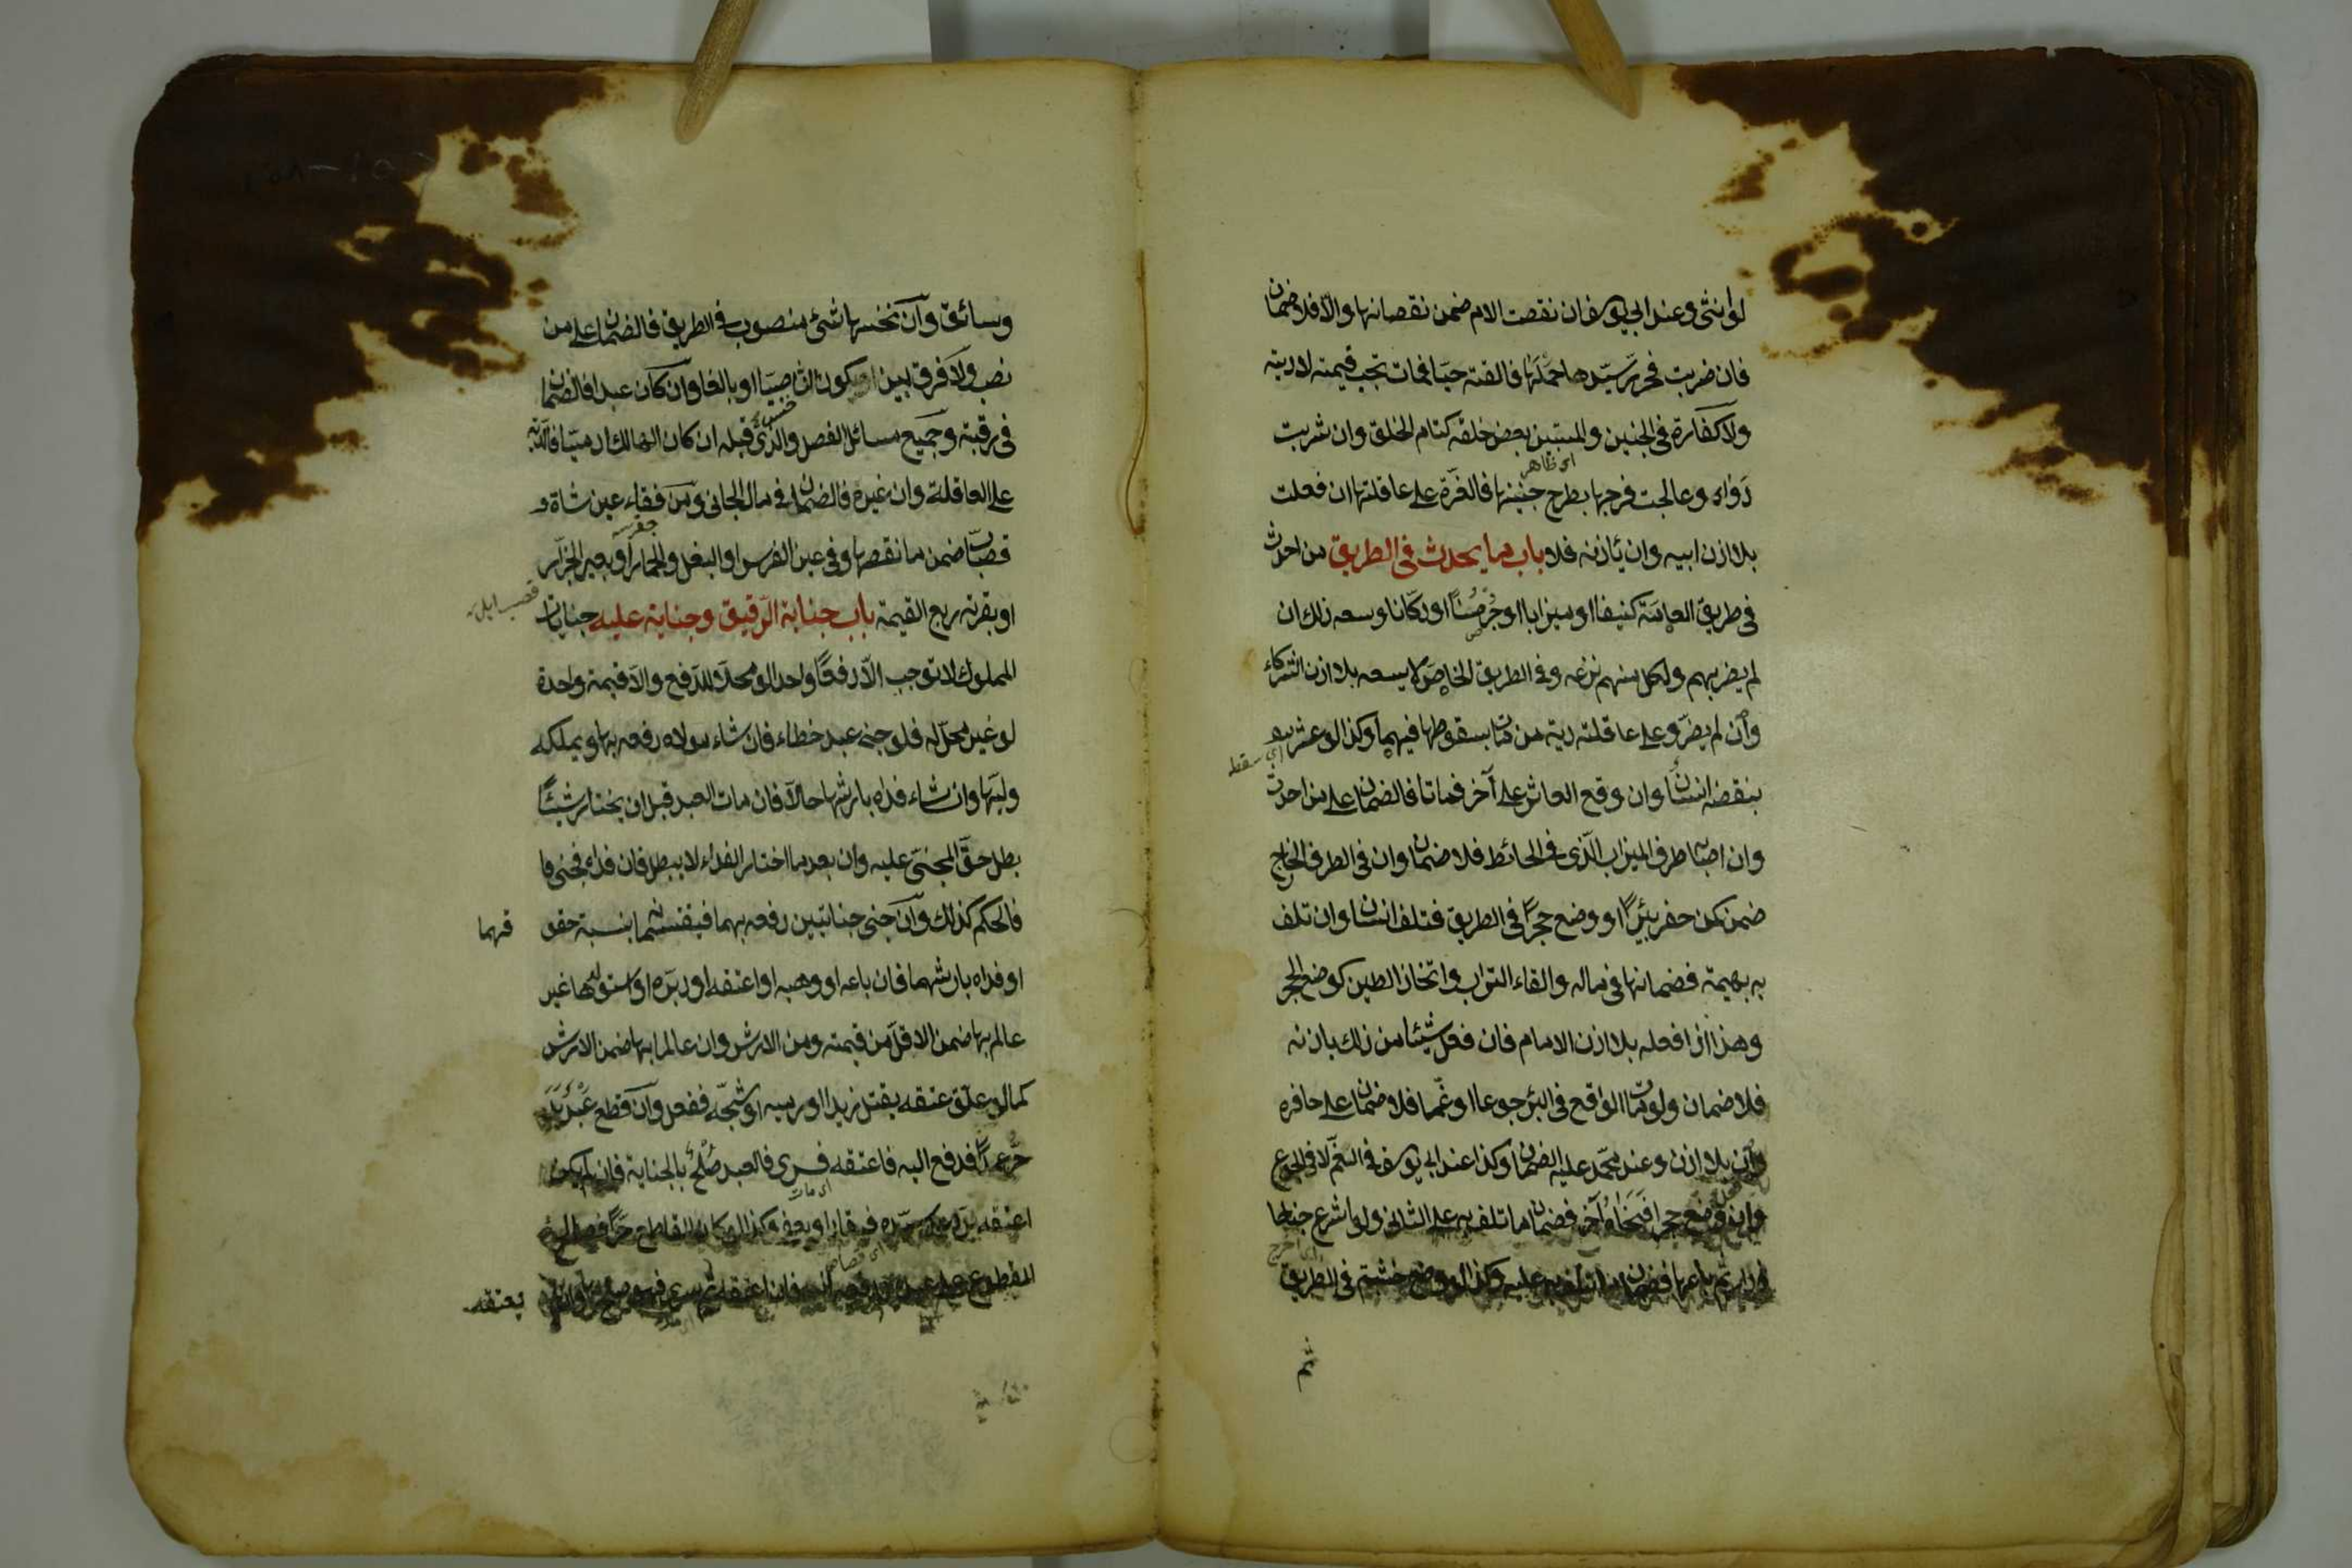 لو انثى وعند ابي يوسف ان نقصت الام ضمن نقصانها والّا فلا ضمان
فان ضربت فحرّر سيّدها حملها فالقته حيّا فمات تجب قيمته لا ديته
ولا كفارة في الجنين والمستبين بعض خلقه كتام الخلق وان شربت
دواء وعالجت فرجها بطرح جنينها فالغرّة على عاقلتها ان فعلت
بلا اذن ابيه وان باذنه فلا باب ما يحدث في الطريق من احدث
في طريق العامّة كنيفا او ميزابا او جرصنا او دكّانا وسعه ذلك ان
لم يضر بهم ولكل منهم نزعه وفي الطريق الخاصّ لا يسعه بلا اذن الشركاء
وان لم يضرّ وعلى عاقلته دية من مات بسقوطها فيهما وكذا لو عثر
اي سقط
بنقضه انسان وان وقع العاثر على آخر فماتا فالضمان على من احدث
وان اصاب طرف الميزاب الّذي في الحائط فلا ضمان وان في الطرف الخارج
ضمن كمن حفر بئرا او وضع حجرا في الطريق فتلف انسان وان تلف
به بهيمة فضمانها في ماله والقاء التراب واتخاذ الطين كوضع الحجر
وهذا اذا فعله بلا اذن الامام فان فعل شيئا من ذلك باذنه
فلا ضمان ولو مات الواقع في البئر جوعا او غمّا فلا ضمان على حافره
وان بلا اذن وعند محمّد عليه الضمان وكذا عند ابي يوسف في الغمّ لا في الجوع
وان وضع حجرا فنحّاه آخر فضمان ما تلف به على الثاني ولو اشرع جناحا
في دار ثم باعها فضمان ما تلف به عليه وكذا لو وضع خشبة في الطريق
ثم
وسائق وان نخسها شئ منصوب في الطريق فالضمان على من
نصب ولا فرق بين ان يكون صبيّا او بالغا وان كان عبدا فالضمان
في رقبته وجميع مسائل الفصل والذي قبله ان كان الهالك ادميّا فالدّية
على العاقلة وان غيره فالضمان في مال الجاني ومن فقاء عين شاة
قصّاب ضمن ما نقصها وفي عين الفرس او البغل والحمار او بعير الجزّار
او بقرته ربع القيمة باب جناية الرّقيق وجناية عليه جنايات
المملوك لا توجب الّا دفعا واحدا لو محلّا للدّفع والّا قيمة واحدة
لو غير محلّ له فلو جنى عبد خطاء فان شاء مولاه دفعه بها ويملكه
وليّها وان شاء فداه بارشها حالّا فان مات العبد قبل ان يختار شيئا
بطل حقّ المجنيّ عليه وان بعد ما اختار الفداء لا يبطل فان فداه فجنى
فالحكم كذلك وان جنى جنايتين دفعه بهما فيقتسمانه بنسبة حقو
قهما
او فداه بارشهما فان باعه او وهبه او اعتقه او دبّره او استولدها غير
عالم بها ضمن الاقلّ من قيمته ومن الارش وان عالما بها ضمن الارش
كما لو علّق عتقه بقتل زيد او رميه او شجّه ففعل وان قطع عبد يد
حرّ عمدا فدفع اليه فاعتقه فسرى فالعبد صلح بالجناية فان لم يكن
اعتقه يردّ على سيّده فيقاد او يعفى وكذا لو كان القاطع حرّا فصالح
المقطوع على عبد ودفعه اليه فان اعتقه ثم سرى فهو صلح بها وان لم
يعتقه